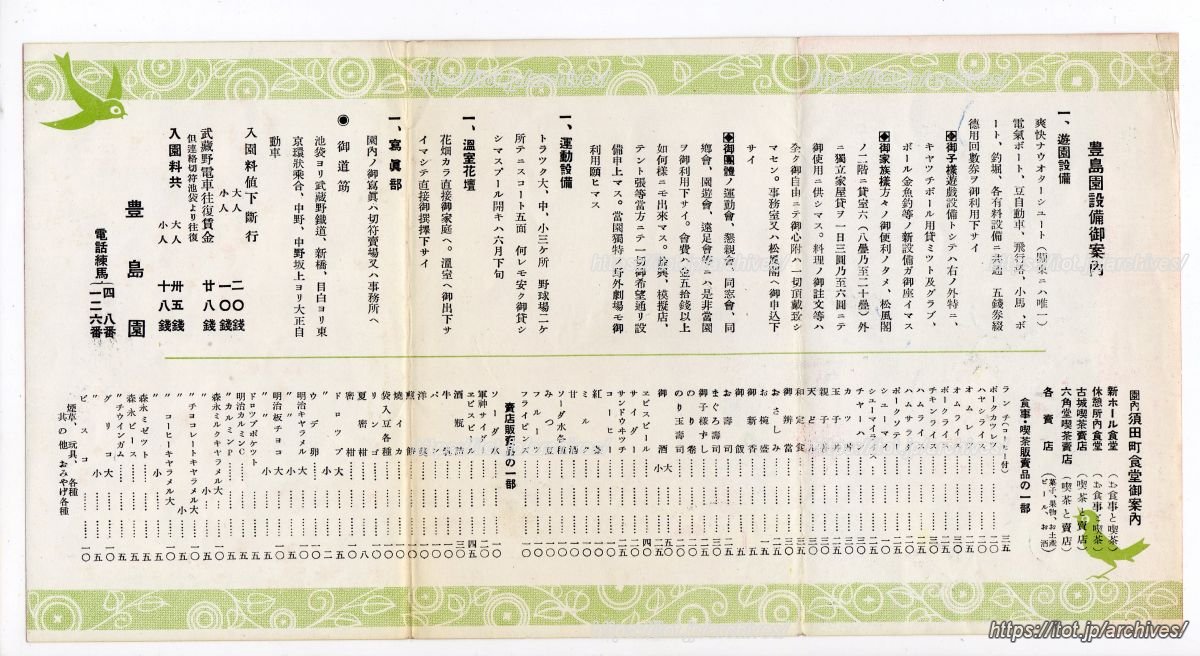 豊島園設備御案内
一、遊園設備
爽快ナウオターシュート(関東ニハ唯一)
電気ボート、豆自動車、飛行塔、小馬、ボ
ート、釣堀、各有料設備ニ共通 五銭券綴
徳用回数券ヲ御利用下サイ
◆御子様遊戯設備トシテハ右ノ外特ニ、
キヤツチボール用貸ミツト及グラブ、
ボール金魚釣等ノ新設備ガ御座イマス
◆御家族様方々ノ御便利ノタメ、松風閣
ノ二階ニ貸室六(八畳乃至二十畳)外
ニ独立家屋貸ヲ一日三圓乃至六圓ニテ
御使用ニ供シマス。料理ノ御註文等ハ
全ク御自由ニテ御心附ハ一切頂戴致シ
マセン。事務室又ハ松風閣ヘ御申込下
サイ
◆御團體ノ運動會、懇親會、同窓會、同
郷會、園遊會、遠足會等ニハ是非當園
ヲ御利用下サイ。會費一人金五拾銭以上
如何様ニモ出来マス。餘興、模擬店、
テント張等當方ニテ一切御希望通リ設
備申上マス。當園独特ノ野外劇場モ御
利用願ヒマス
一、運動設備
トラツク大、中、小三ケ所 野球場二ケ
所テニスコート五面 何レモ安ク御貸シ
シマスプール開キハ六月下旬
一、温室花壇
花畑カラ直接御家庭ヘ。温室ヘ御出下サ
イマシテ直接御撰擇下サイ
一、寫眞部
園内ノ御寫眞ハ切符賣場又ハ事務所ヘ
◉御道筋
池袋ヨリ武蔵野鐵道、新橋、目白ヨリ東
京環状乗合、中野、中野坂上ヨリ大正自
動車
入園料値下斷行
大人 二〇銭
小人 一〇銭
武蔵野電車往復賃金 廿八銭
但連絡切符池袋より往復
入園料共
大人 卅五銭
小人 十八銭
豊島園
電話練馬 一四八番
一二六番
園内須田町食堂御案内
新ホール食堂(お食事と喫茶)
休憩所内食堂(お食事と喫茶)
古城喫茶賣店(喫茶と賣店)
六角堂喫茶賣店(喫茶と賣店)
各賣店(菓子、果物、お土産
ビール、お酒)
食事・喫茶販賣品の一部
ランチ(コーヒー付)……三五
ポークカツレツ
ハヤシライス
オムレツ
オムライス
ポークライス
チキンライス
ハムライス
ハムサラダ
ポークサラダ
シユーマイ
シユーマイライス
チヤーハン
カツ丼
玉子丼
親子丼
天どん
和定食
御辨當
おさしみ
お椀盛
御新香
御飯
お壽司
まぐろ壽司
御子様ずし
のり巻
のり玉壽司
御酒 大
小
ヱビスビール
サイダー
サンドウヰツチ
コーヒー
紅茶
ミルク
甘酒
ソーダ水各種
みつ豆
フルーツ
フライビンズ
賣店販賣品の一部
ソーダ水
軍神サイダー
ヱビスビール
酒瓶詰
牛乳
パン
洋菓
煎餅
焼イカ
袋入豆各種
リンゴ
夏蜜柑
密柑
ウデ卵
ドロツプ 大
〃 小
明治キヤラメル 大
〃 小
明治板チヨコ 大
〃 小
ドロツプポケツト
明治カルミンC
〃カルミンP
森永ミルクキヤラメル 大
〃 小
〃チヨコレートキヤラメル 大
〃 小
〃コーヒーキヤラメル 大
森永ミゼツト
森永ピース
〃チウインガム
グリコ 大
〃 小
ビスコ
煙草、玩具、各種
其の他 おみやげ各種
https://itot.jp/archives/